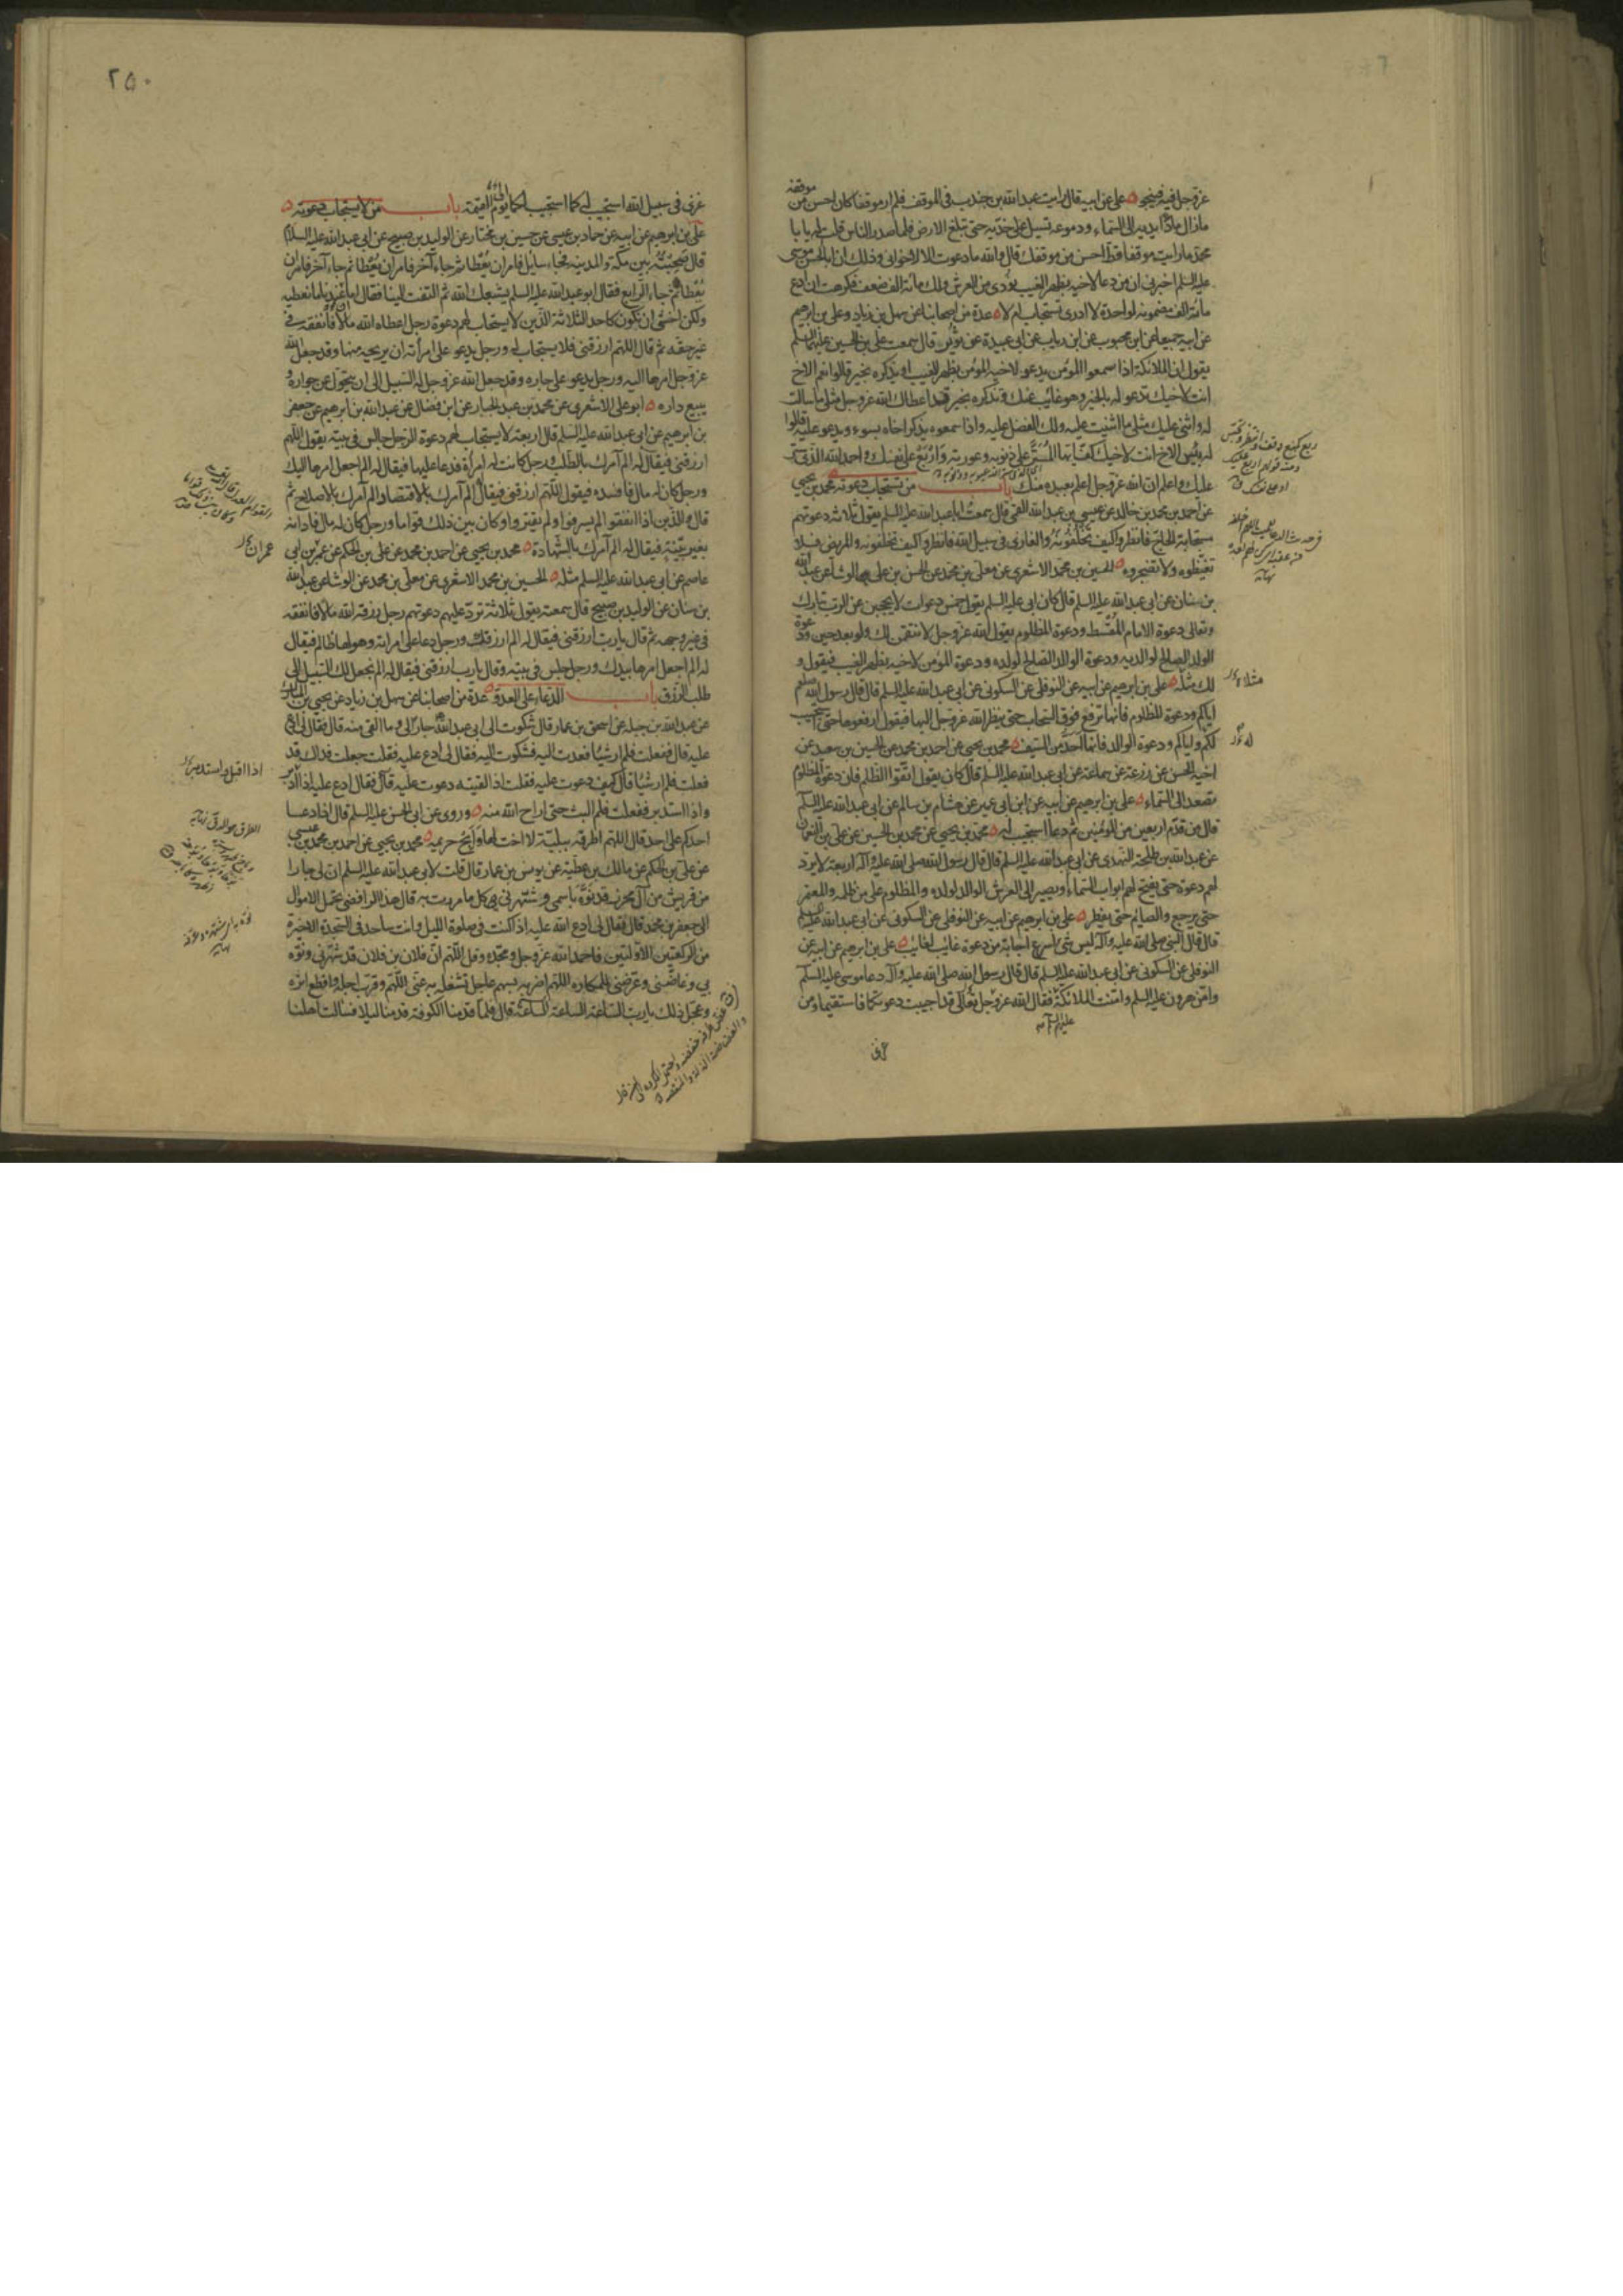 عزوجل فيه فينجو علي عن ابيه قال رايت عبدالله بن جندب في الموقف فلم ار موقفا كان احسن من موقفه
مازال مادّا يديه الى السماء ودموعه تسيل على خدّيه حتى تبلغ الارض فلما صدر الناس قلت له يا با
محمد ما رايت موقفا قط احسن من موقفك قال والله ما دعوت الا لاخواني وذلك ان ابا الحسن موسى
عليه السلم اخبرني ان من دعا لاخيه بظهر الغيب نودى من العرش ولك مائة الف ضعف فكرهت ان ادع
مائة الف مضمونة لواحدة لا ادرى تستجاب ام لا عدة من اصحابنا عن سهل بن زياد وعلي بن ابرهيم
عن ابيه جميعا عن ابن محبوب عن ابن رياب عن ابي عبيدة عن ثوير قال سمعت علي بن الحسين عليهما السلم
يقول ان الملائكة اذا سمعوا المؤمن يدعو لاخيه المؤمن بظهر الغيب او يذكره بخير قالوا نعم الاخ
انت لاخيك تدعو له بالخير وهو غائب عنك وتذكره بخير قد اعطاك الله عزوجل مثلى ما سالت
له واثنى عليك مثلى ما اثنيت عليه ولك الفضل عليه واذا سمعوه يذكر اخاه بسوء ويدعو عليه قالوا
له بئس الاخ انت لاخيك كفّ ايها المُسَتَّر على ذنوبه وعورته وَارْبَعْ على نفسك واحمد الله الذى ستر
عليك واعلم ان الله عزوجل اعلم بعبده منك باب من تستجاب دعوته محمد بن يحيى
عن احمد بن محمد بن خالد عن عيسى بن عبدالله القمي قال سمعت ابا عبدالله عليه السلم يقول ثلاثة دعوتهم
مستجابة الحاج فانظروا كيف تخلفونه والغازى في سبيل الله فانظروا كيف تخلفونه والمريض فلا
تغيظوه ولا تضجروه الحسين بن محمد الاشعرى عن معلّى بن محمد عن الحسن بن علي الوشا عن عبدالله
بن سنان عن ابي عبدالله عليه السلم قال كان ابي عليه السلم يقول خمس دعوات لا يحجبن عن الرب تبارك
وتعالى دعوة الامام المقسط ودعوة المظلوم يقول الله عزوجل لانتقمن لك ولو بعد حين ودعوة
الولد الصالح لوالديه ودعوة الوالد الصالح لولده ودعوة المؤمن لاخيه بظهر الغيب فيقول و
لك مثله علي بن ابرهيم عن ابيه عن النوفلي عن السكوني عن ابي عبدالله عليه السلم قال قال رسول الله صلعم
اياكم ودعوة المظلوم فانها ترفع فوق السحاب حتى ينظر الله عزوجل اليها فيقول ارفعوها حتى استجيب
لكم واياكم ودعوة الوالد فانها احدّ من السيف محمد بن يحيى عن احمد بن محمد عن الحسين بن سعيد عن
اخيه الحسن عن زرعة عن سماعة عن ابي عبدالله عليه السلم قال كان يقول اتقوا الظلم فان دعوة المظلوم
تصعد الى السماء علي بن ابرهيم عن ابيه عن ابن ابي عمير عن هشام بن سالم عن ابي عبدالله عليه السلم
قال من قدّم اربعين من المؤمنين ثم دعا استجيب له محمد بن يحيى عن محمد بن الحسين عن علي بن النعمان
عن عبدالله بن طلحة النهدى عن ابي عبدالله عليه السلم قال قال رسول الله صلى الله عليه وآله اربعة لا يرد
لهم دعوة حتى يفتح لهم ابواب السماء ويصير الى العرش الوالد لولده والمظلوم على من ظلمه والمعتمر
حتى يرجع والصايم حتى يفطر علي بن ابرهيم عن ابيه عن النوفلي عن السكوني عن ابي عبدالله عليه السلم
قال قال النبي صلى الله عليه وآله ليس شئ باسرع اجابة من دعوة غايب لغايب علي بن ابرهيم عن ابيه عن
النوفلي عن السكوني عن ابي عبدالله عليه السلم قال قال رسول الله صلى الله عليه وآله دعا موسى عليه السلم
وامّن هرون عليه السلم وامّنت الملائكة فقال الله عزوجل تعالى قد اجيبت دعوتكما فاستقيما ومن
عليهم السلم
غزى
مثلاه
له
٢٥٠
غزى في سبيل الله استجيب له كما استجيب لكما الى يوم القيمة باب من لا يستجاب دعوته
علي بن ابرهيم عن ابيه عن حماد بن عيسى عن حسين بن مختار عن الوليد بن صبيح عن ابي عبدالله عليه السلام
قال صحبته بين مكة والمدينة فجاء سايل فامر ان يُعْطا ثم جاء آخر فامر ان يُعْطا ثم جاء آخر فامر ان
يُعْطا ثم جاء الرابع فقال ابو عبدالله عليه السلم يشبعك الله ثم التفت الينا فقال اما ان عندنا ما نعطيه
ولكن اخشى ان نكون كاحد الثلاثة الذين لا يستجاب لهم دعوة رجل اعطاه الله مالا فانفقه في
غير حقه ثم قال اللهم ارزقني فلا يستجاب له ورجل يدعو على امرأته ان يريحه منها وقد جعل الله
عزوجل امرها اليه ورجل يدعو على جاره وقد جعل الله عزوجل له السبيل الى ان يتحوّل عن جواره و
يبيع داره ابو علي الاشعرى عن محمد بن عبد الجبار عن ابن فضال عن عبدالله بن ابرهيم عن جعفر
بن ابرهيم عن ابي عبدالله عليه السلم قال اربعة لا يستجاب لهم دعوة الرجل جالس في بيته يقول اللهم
ارزقني فيقال له الم آمرك بالطلب ورجل كانت له امرأة فدعا عليها فيقال له الم اجعل امرها اليك
ورجل كان له مال فافسده فيقول اللهم ارزقني فيقال الم آمرك بالاقتصاد الم آمرك بالاصلاح ثم
قال والذين اذا انفقوا لم يسرفوا ولم يقتروا وكان بين ذلك قواما ورجل كان له مال فادانه
بغير بيّنة فيقال له الم آمرك بالشهادة محمد بن يحيى عن احمد بن محمد عن علي بن الحكم عن عمر بن ابي
عاصم عن ابي عبدالله عليه السلم مثله الحسين بن محمد الاشعرى عن معلّى بن محمد عن الوشا عن عبدالله
بن سنان عن الوليد بن صبيح قال سمعته يقول ثلاثة تردّ عليهم دعوتهم رجل رزقه الله مالا فانفقه
في غير وجهه ثم قال يا رب ارزقني فيقال له الم ارزقك ورجل دعا على امراته وهو لها ظالم فيقال
له الم اجعل امرها بيدك ورجل جلس في بيته وقال يا رب ارزقني فيقال له الم نجعل لك السبيل الى
طلب الرزق باب الدعاء على العدو عدة من اصحابنا عن سهل بن زياد عن يحيى بن المبارك
عن عبدالله بن جبلة عن اسحق بن عمار قال شكوت الى ابي عبدالله جارًا لي وما القى منه قال فقال لي ادع
عليه قال ففعلت فلم ار شيئا فعدت اليه فشكوت اليه فقال لي ادع عليه فقلت جعلت فداك قد
فعلت فلم ار شيئا قال كيف دعوت عليه فقلت اذا لقيته دعوت عليه قال فقال ادع عليه اذا ادبر
واذا استدبر ففعلت فلم البث حتى اراح الله منه وروى عن ابي الحسن عليه السلم قال اذا دعا
احدكم على احد قال اللهم اطرقه ببلية لا اخت لها واَبِحْ حريمه محمد بن يحيى عن احمد بن محمد بن عيسى
عن علي بن الحكم عن مالك بن عطية عن يونس بن عمار قال قلت لابي عبدالله عليه السلم ان لي جارا
من قريش من آل محرز قد نوّه باسمى وشهّرني في كل ما مررت به قال هذا الرافضى يحمل الاموال
الى جعفر بن محمد قال فقال لي ادع الله عليه اذ كنت في صلوة الليل وانت ساجد في السجدة الاخيرة
من الركعتين الاوّلتين فاحمد الله عزوجل ومجّده وقل اللهم انّ فلان بن فلان قد شهّرني ونوّه
بي وغاضني وعرّضني للمكاره اللهم اضربه بسهم عاجل تشغله به عنّي اللهم وقرّب اجله واقطع اثره
وعجّل ذلك يا ربّ الساعة الساعة الساعة قال فلما قدمنا الكوفة قدمنا ليلا فسالت اهلنا
عمران
اذا اقبل واستدبر